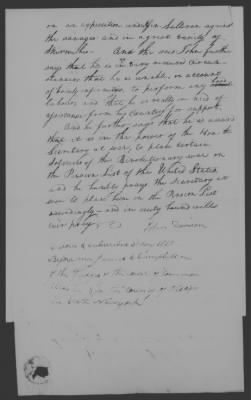 on an expedition under Sullivan against
the savages and in a great variety of
And the said John further
says that he is in very reduced circum-
stances that he is unable, on account
of bodily infirmity, to perform any hard
labor, and that he is really in need of
assistance from his Country for support.
And he further says that he is advised
that it is in the power of the Hon. the
Secretary at war, to place certain
Soldiers of the Revolutionary war on
the Pension List of the United States
and he humbly prays the Secretary at
war to place him on the Pension List
accordingly and in duty bound will
ever pray. John
Sworn & subscribed
Before me
of the Judges of the Court of Common
in the County of
in State New York